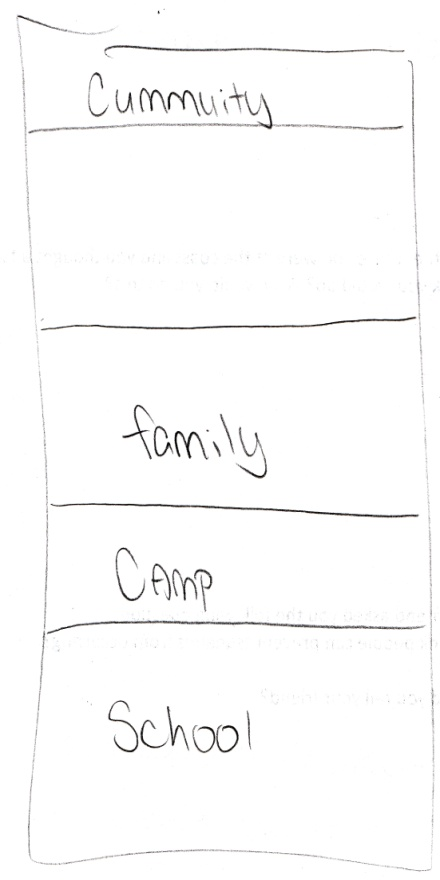 Cummuity
family
Camp
School